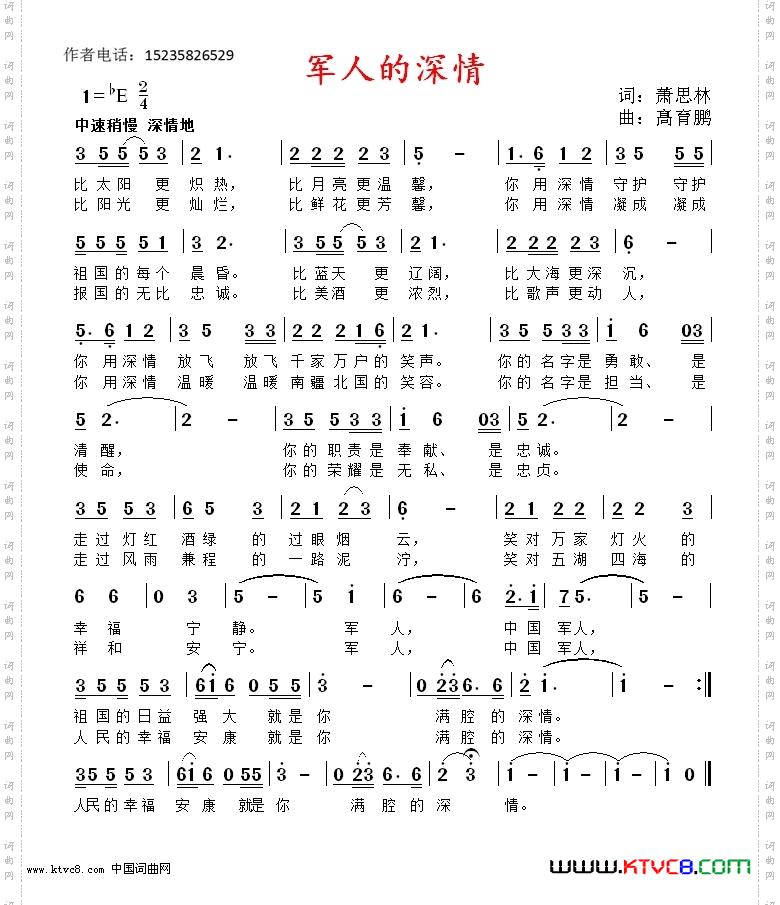 作者电话：15235826529
军人的深情
1=♭E 2/4
词：萧思林
曲：髙育鹏
中速稍慢 深情地
3 5 5 5 3 | 2 1· | 2 2 2 2 3 | 5 - | 1· 6 1 2 | 3 5 5 5 |
比太阳 更 炽热， 比月亮更温 馨， 你 用深情 守护 守护
比阳光 更 灿烂， 比鲜花更芳 馨， 你 用深情 凝成 凝成
5 5 5 5 1 | 3 2· | 3 5 5 5 3 | 2 1· | 2 2 2 2 3 | 6 - |
祖国的每个 晨昏。 比蓝天 更 辽阔， 比大海更深 沉，
报国的无比 忠诚。 比美酒 更 浓烈， 比歌声更动 人，
5· 6 1 2 | 3 5 3 3 | 2 2 2 1 6 | 2 1· | 3 5 5 3 3 | 1 6 0 3 |
你 用深情 放飞 放飞 千家万户的 笑声。 你的名字是 勇敢、 是
你 用深情 温暖 温暖 南疆北国的 笑容。 你的名字是 担当、 是
5 2· | 2 - | 3 5 5 3 3 | 1 6 0 3 | 5 2· | 2 - |
清醒， 你的 职责是 奉献、 是 忠诚。
使命， 你的 荣耀是 无私、 是 忠贞。
3 5 5 3 | 6 5 3 | 2 1 2 3 | 6 - | 2 1 2 2 | 2 2 3 |
走过 灯红 酒绿 的 过眼烟 云， 笑对 万家 灯火 的
走过 风雨 兼程 的 一路泥 泞， 笑对 五湖 四海 的
6 6 | 0 3 | 5 - | 5 1 | 6 - | 6 - | 2· 1 | 7 5· | 5 - |
幸 福 宁 静。 军 人， 中国 军人，
祥 和 安 宁。 军 人， 中国 军人，
3 5 5 5 3 | 6 1 6 0 5 5 | 3 - | 0 2 3 6· 6 | 2 1· | 1 - :|
祖国的日益 强大 就是你 满腔的深情。
人民的幸福 安康 就是你 满腔的深情。
3 5 5 5 3 | 6 1 6 0 5 5 | 3 - | 0 2 3 6· 6 | 2 3 | 1 - | 1 - | 1 - | 1 0 ‖
人民的幸福 安康 就是 你 满腔的深 情。
www.ktvc8.com 中国词曲网
WWW.KTVC8.COM
词曲网